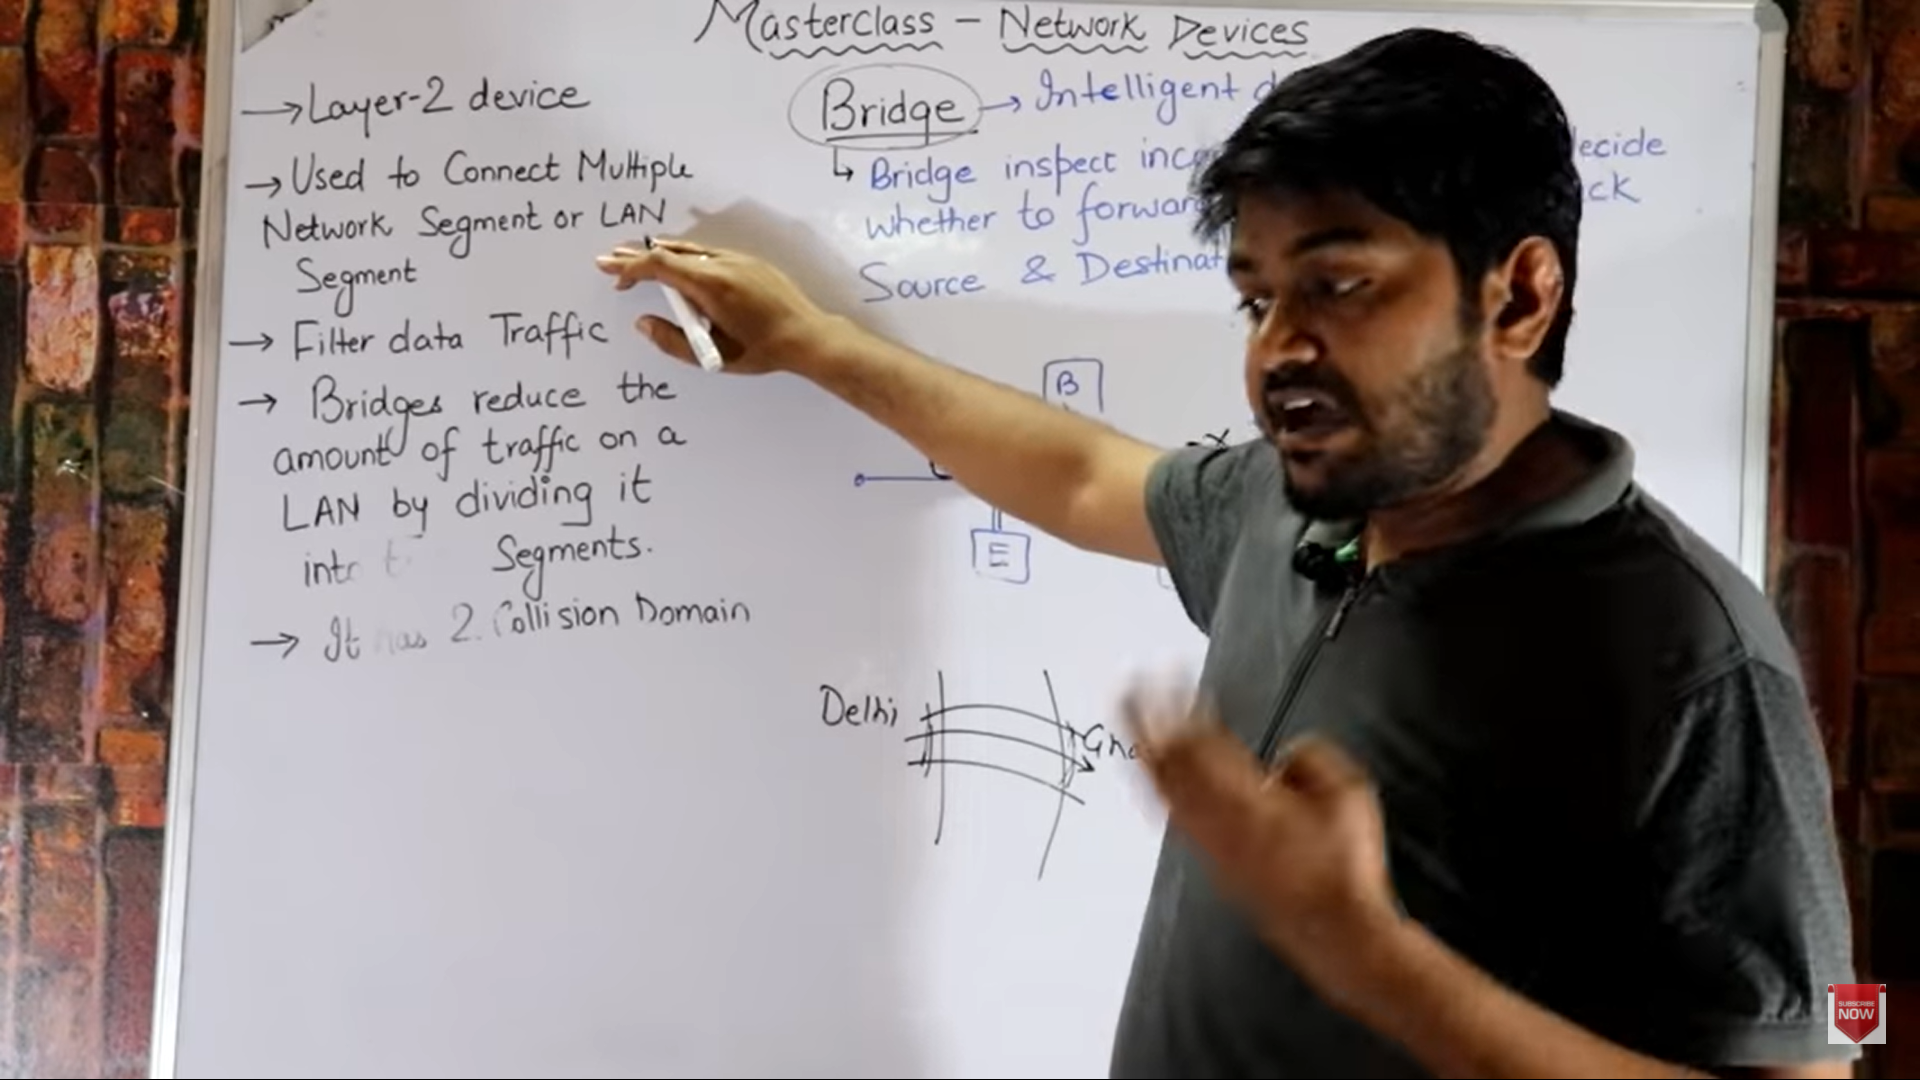 Masterclass - Network Devices
→ Layer-2 device
→ Used to Connect Multiple
Network Segment or LAN
Segment
→ Filter data Traffic
→ Bridges reduce the
amount of traffic on a
LAN by dividing it
into Segments.
→ It has 2. Collision Domain
Bridge → Intelligent
↳ Bridge inspect
decide
whether to forward
Source &
B
E
Delhi
SUBSCRIBE
NOW